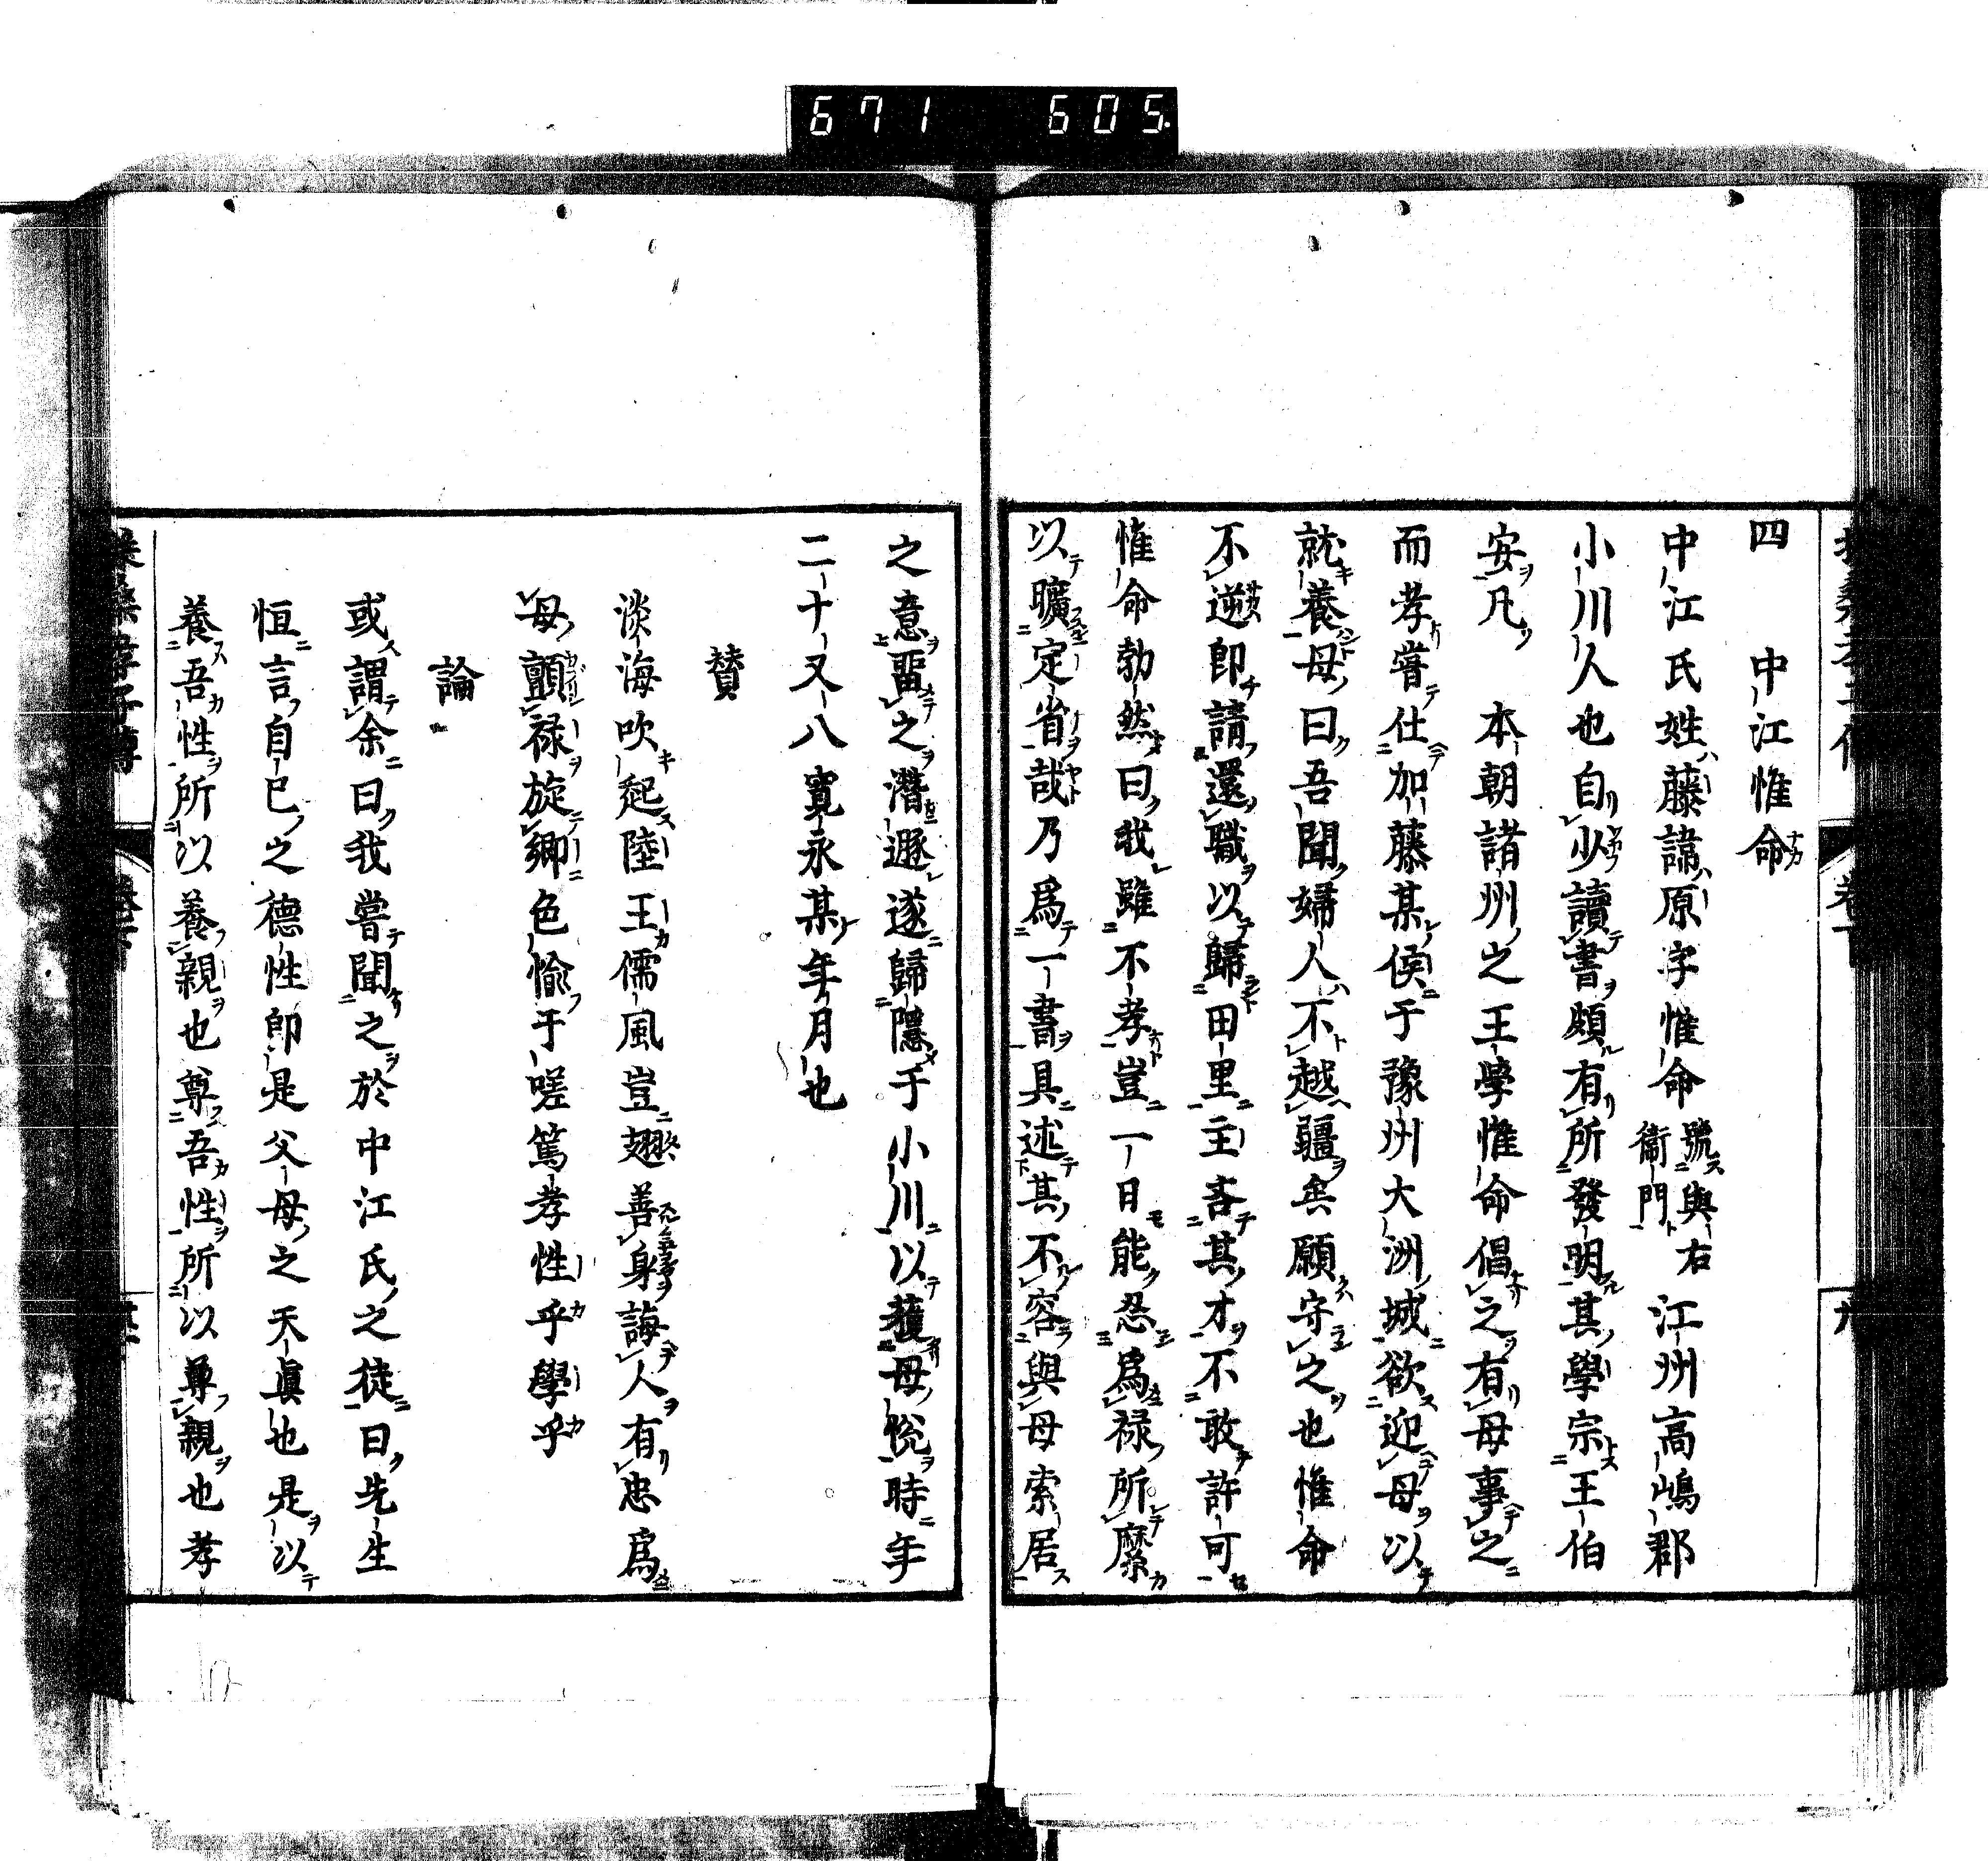 671 605
四 中江惟命
中江氏姓藤諱原字惟命號與右衞門江州高嶋郡
小川人也自少讀書頗有所發明其學宗王伯
安凡 本朝諸州之王學惟命倡之有母事之
而孝嘗仕加藤某侯于豫州大洲城欲迎母以
就養母曰吾聞婦人不越疆矣願守之也惟命
不逆卽請還職以歸田里主吝其才不敢許可
惟命勃然曰我雖不孝豈一日能忍爲祿所縻
以曠定省哉乃爲一書具述其不容與母索居
之意畱之潛遯遂歸隱于小川以獲母悅時年
二十又八寬永某年月也
贊
淡海吹起陸王儒風豈翅善身誨人有忠爲
母顫祿旋鄉色愉于嗟篤孝性乎學乎
論
或謂余曰我嘗聞之於中江氏之徒曰先生
恒言自己之德性卽是父母之天眞也是以
養吾性所以養親也尊吾性所以尊親也孝